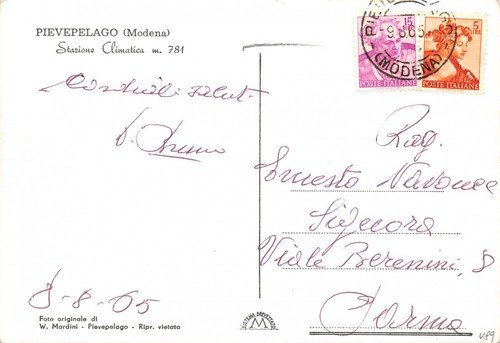 PIEVEPELAGO (Modena)
Stazione Climatica m. 781
Cordiali saluti
8-8-65
Foto originale di
W. Mordini - Pievepelago - Ripr. vietata
SISTEMA BREVETTATO
M
15
LIRE
POSTE ITALIANE
5
LIRE
POSTE ITALIANE
-9.8.65
(MODENA)
Rag.
Ernesto
Signora
Viale Berenini, 8
Parma
V.89